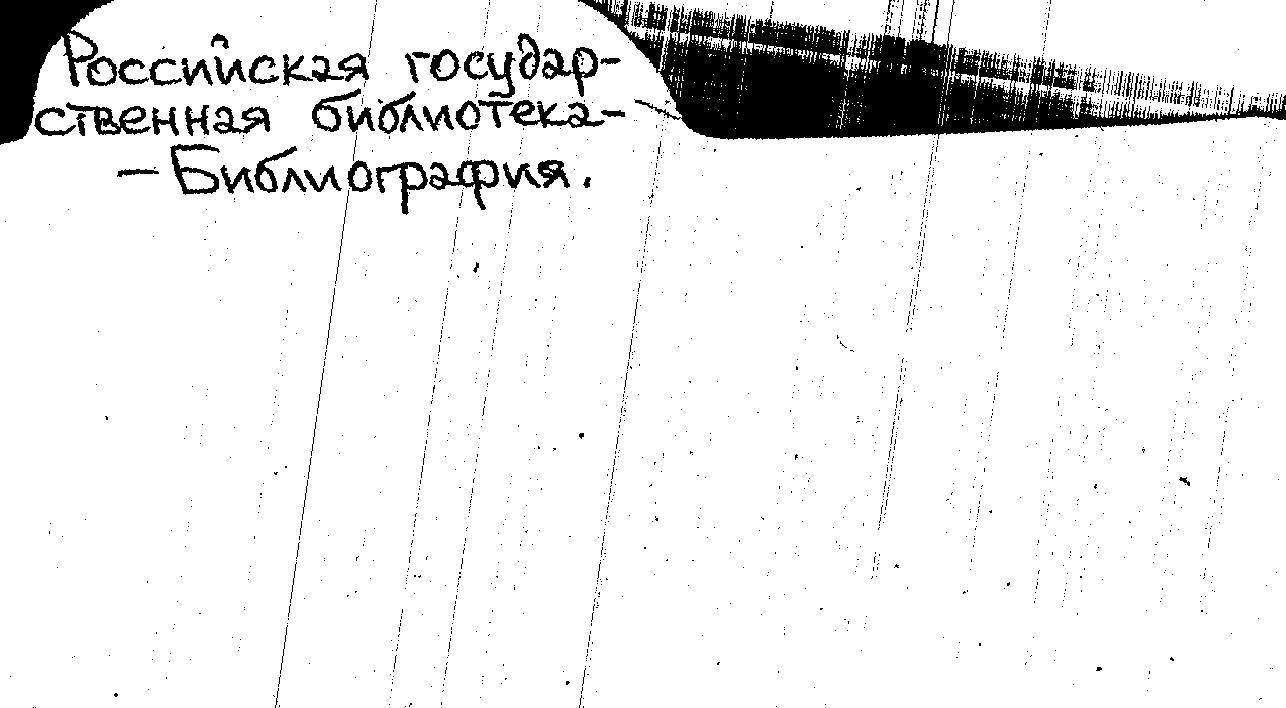 Российская государ-
ственная библиотека-
- Библиография.